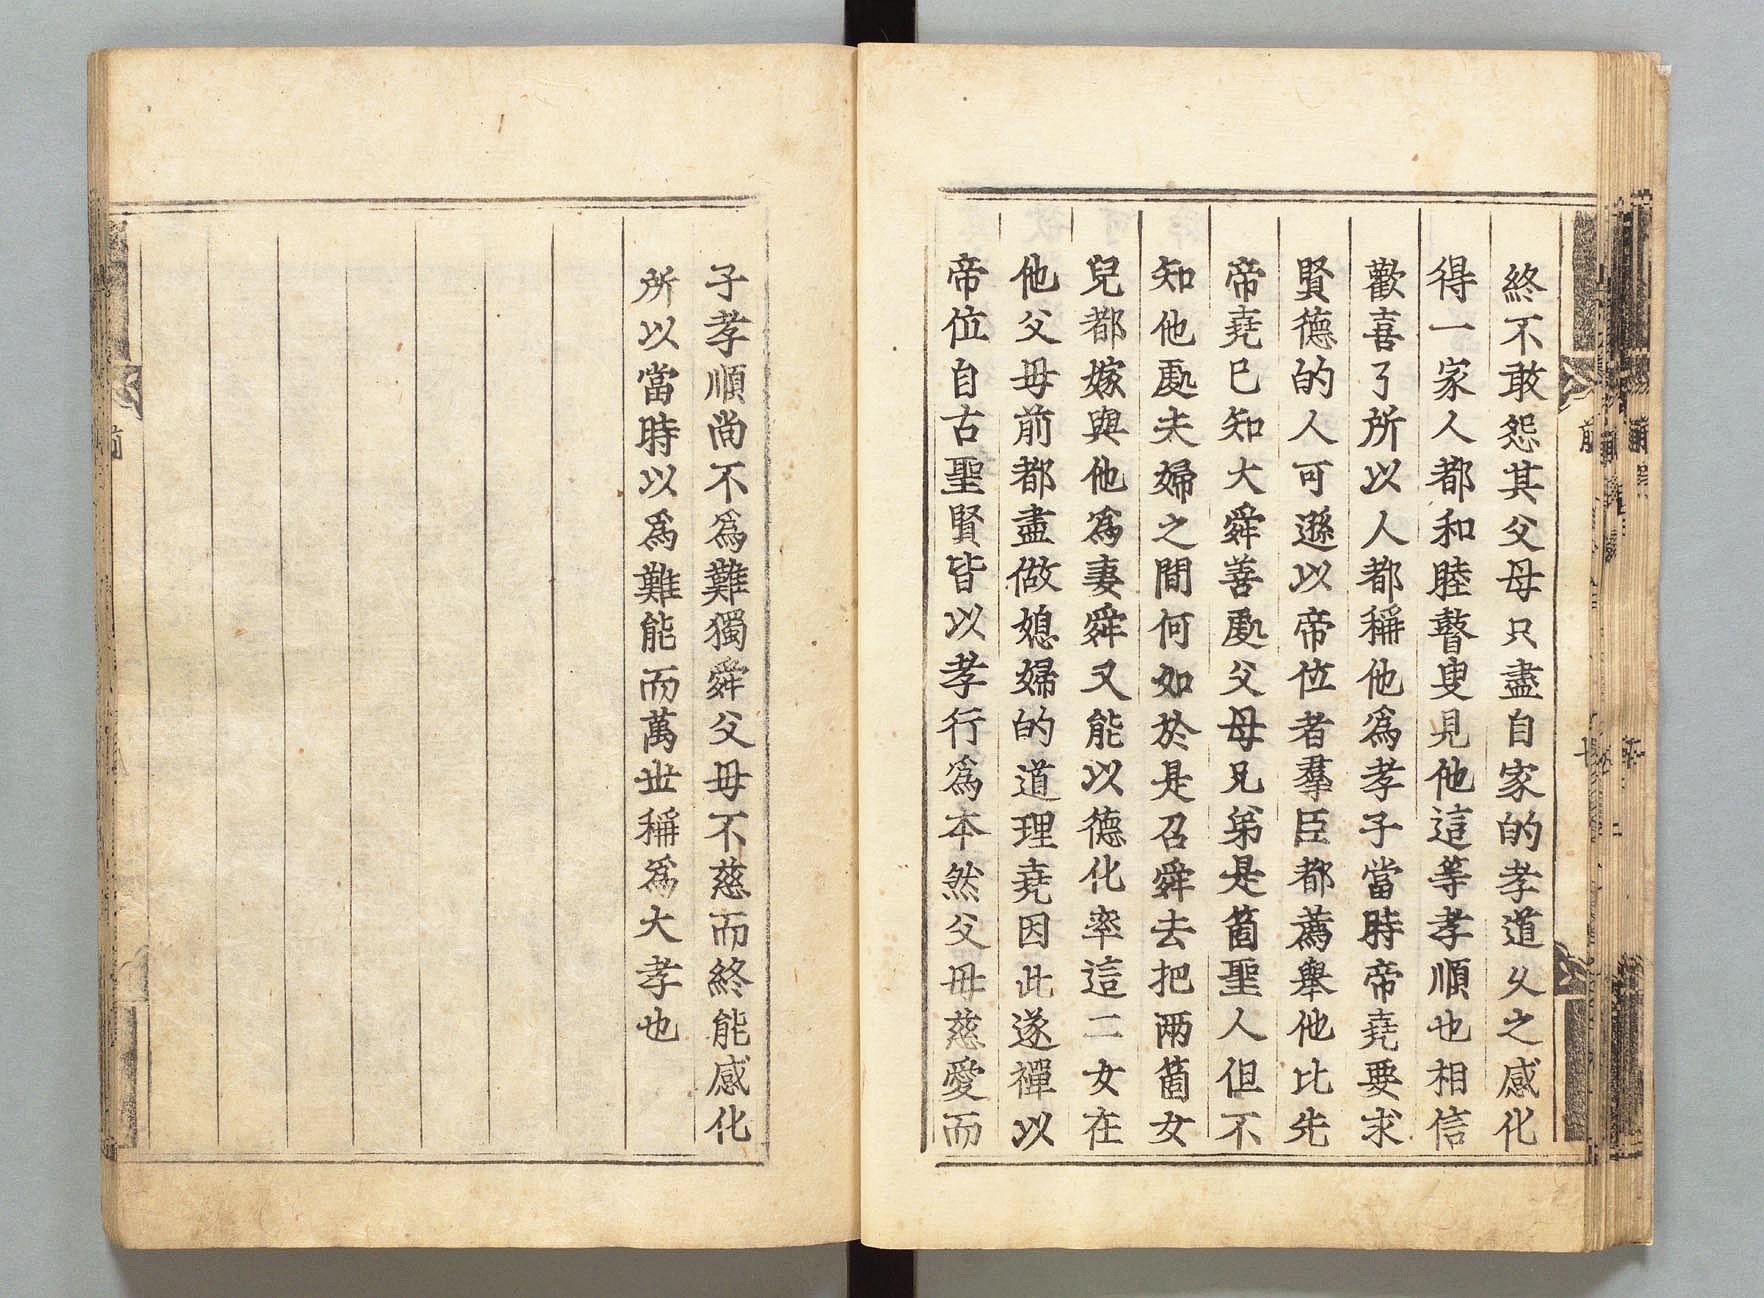 終不敢怨其父母只盡自家的孝道久之感化
得一家人都和睦瞽叟見他這等孝順也相信
歡喜了所以人都稱他爲孝子當時帝堯要求
賢德的人可遜以帝位者羣臣都薦舉他比先
帝堯已知大舜善處父母兄弟是箇聖人但不
知他處夫婦之間何如於是召舜去把兩箇女
兒都嫁與他爲妻舜又能以德化率這二女在
他父母前都盡做媳婦的道理堯因此遂禪以
帝位自古聖賢皆以孝行爲本然父母慈愛而
子孝順尚不爲難獨舜父母不慈而終能感化
所以當時以爲難能而萬世稱爲大孝也